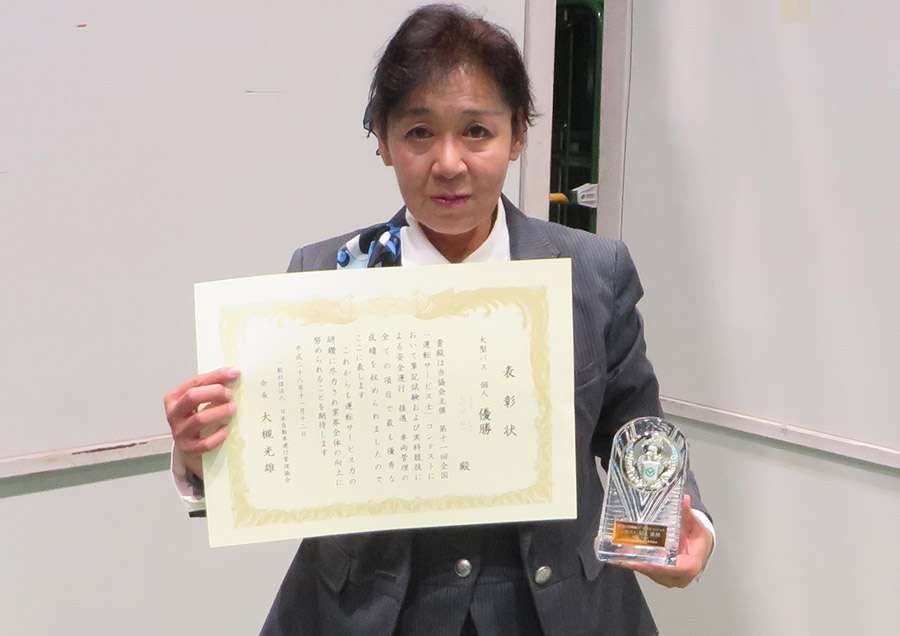 表彰状
大型バス 個人 優勝
殿
貴殿は当協会主催 第十一回全国
「運転サービス士」コンテストに
おいて筆記試験および実科競技に
よる安全運行 接遇 車両管理の
全ての項目で最も優秀な
成績を収められましたので
ここに表します
これからも運転サービス力の
研鑽に尽力され業界全体の向上に
努められることを期待します
平成二十八年十一月十二日
一般社団法人 日本自動車運行管理協会
会長 大槻光雄
個人 優勝